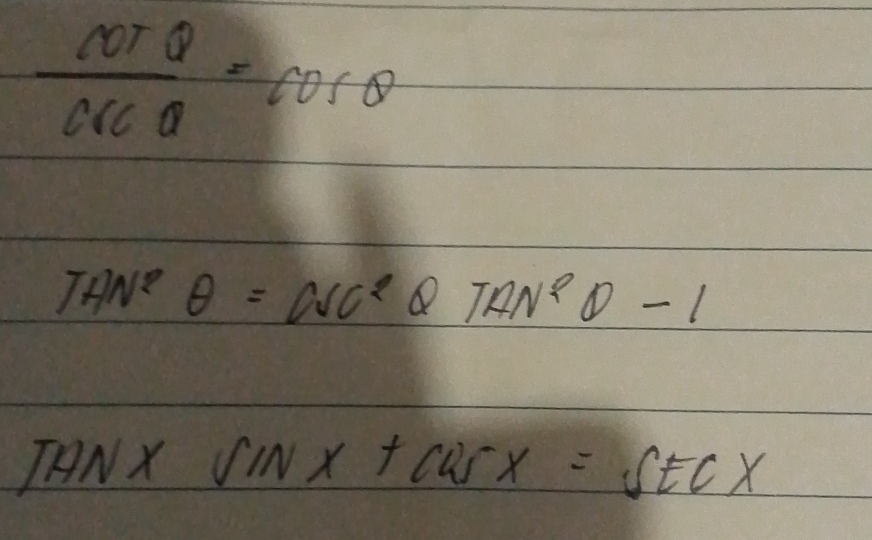 COT θ
CSC θ = COS θ
TAN² θ = CSC² θ TAN² θ - 1
TAN X SIN X + COS X = SEC X